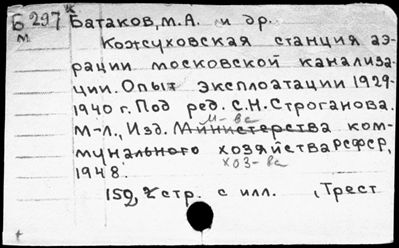 Б 297 к Батаков, М. А. и др.
м
Кожуховская станция аэ-
рации московской канализа-
ции. Опыт эксплоатации 1929-
1940 г. Под ред. С. Н. Строганова.
м-ва
М-л., Изд. Министерства ком-
мунального хозяйства РСФСР,
хоз-ва
1948.
152, 2 стр. с илл. , Трест